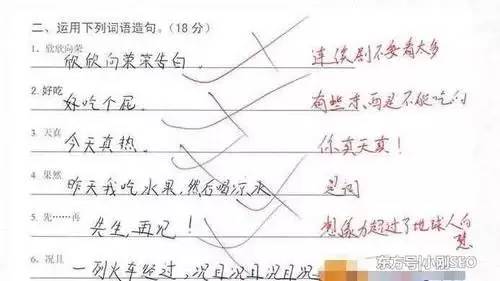 二、运用下列词语造句。(18分)
1. 欣欣向荣
欣欣向荣荣告白。 连续剧不要看太多
2. 好吃
好吃个屁。 有些东西是不能吃的
3. 天真
今天真热。 你真天真！
4. 果然
昨天我吃水果,然后喝凉水 是词
5. 先……再
先生,再见！ 想像力超过了地球人的
想
6. 况且
一列火车经过,况且况且况且况
东方号|小刚SEO